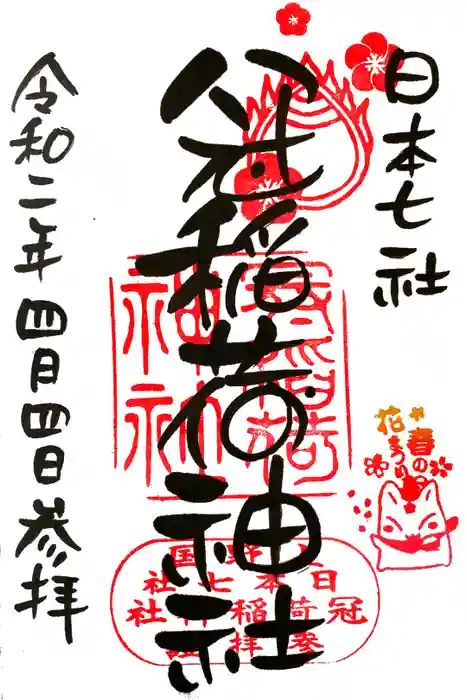 日本七社
八社稲荷神社
令和二年四月四日参拝
春の
花まつり
上野国
日本七社
冠稲荷神社
参拝証